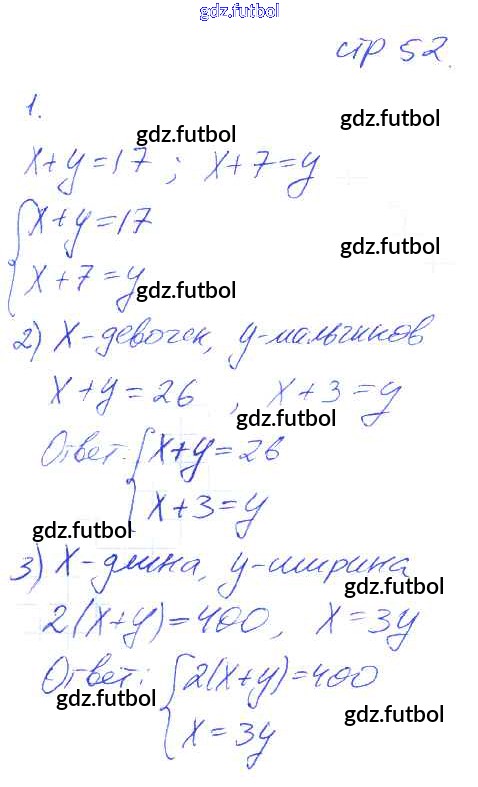 gdz.futbol
стр 52.
1.
gdz.futbol
gdz.futbol
x+y=17 ; x+7=y
x+y=17
gdz.futbol
x+7=y
gdz.futbol
2) x-девочек, y-мальчиков
x+y=26, x+3=y
gdz.futbol
Ответ: { x+y=26
x+3=y
gdz.futbol
3) x-длина, y-ширина
gdz.futbol
2(x+y)=400, x=3y
Ответ: { 2(x+y)=400
gdz.futbol
gdz.futbol
x=3y